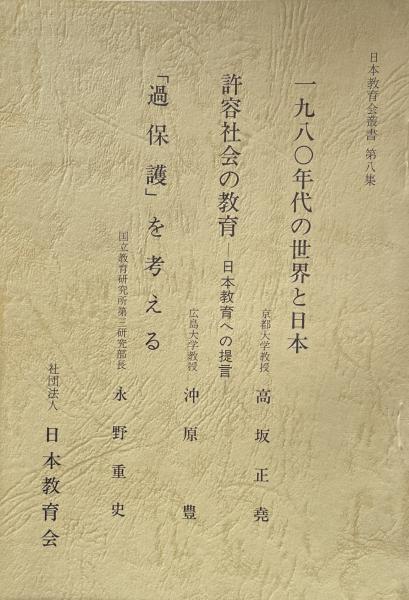 日本教育会叢書 第八集
一九八〇年代の世界と日本
京都大学教授 高坂正堯
許容社会の教育―日本教育への提言―
広島大学教授 沖原豊
「過保護」を考える
国立教育研究所第三研究部長 永野重史
社団法人 日本教育会